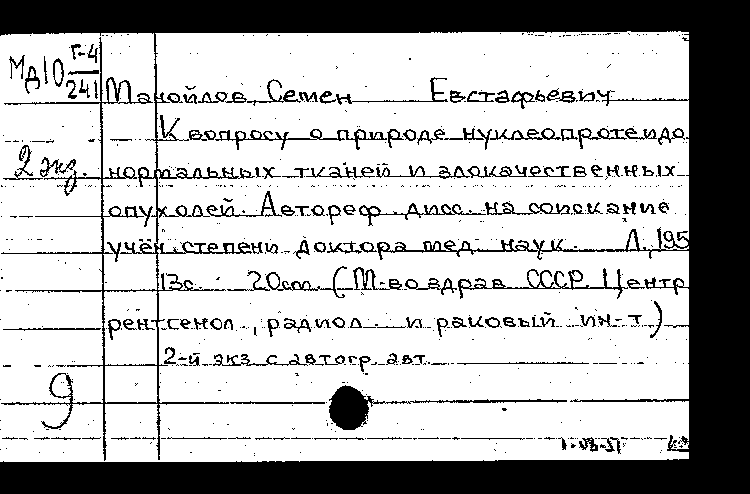 Мд10 Г-4/241
Манойлов, Семен Евстафьевич
К вопросу о природе нуклеопротеидо
2 экз.
нормальных тканей и злокачественных
опухолей. Автореф. дисс. на соискание
учён. степени доктора мед. наук. Л., 195
13с. 20см. (М-во здрав. СССР. Центр
рентгенол., радиол. и раковый ин-т)
2-й экз. с автогр. авт.
9